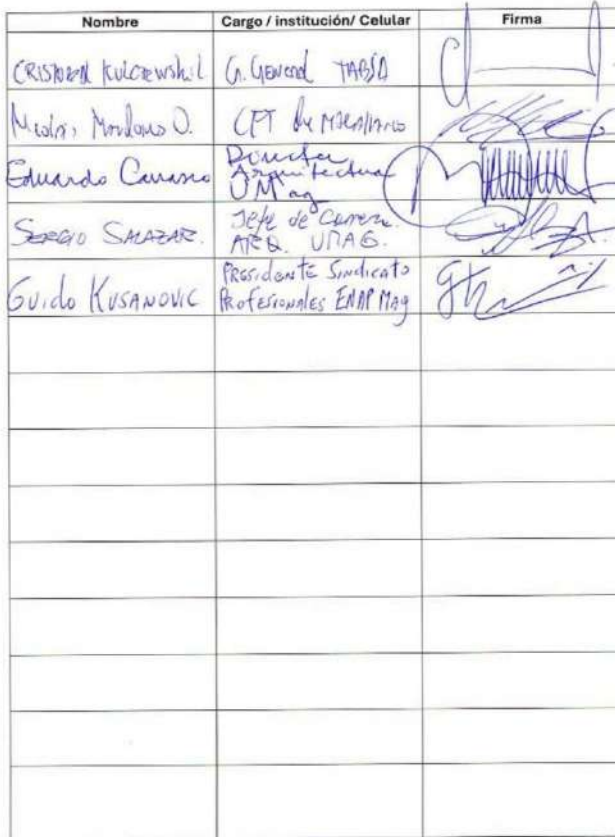 Nombre Cargo / institución/ Celular Firma
G. General TABSA
CFT de Magallanes
Eduardo Carrasco Director
Arquitectura
UMag
SERGIO SALAZAR. Jefe de Carrera.
ARQ. UMAG.
GUIDO KUSANOVIC PRESIDENTE Sindicato
PROFESIONALES ENAP Mag